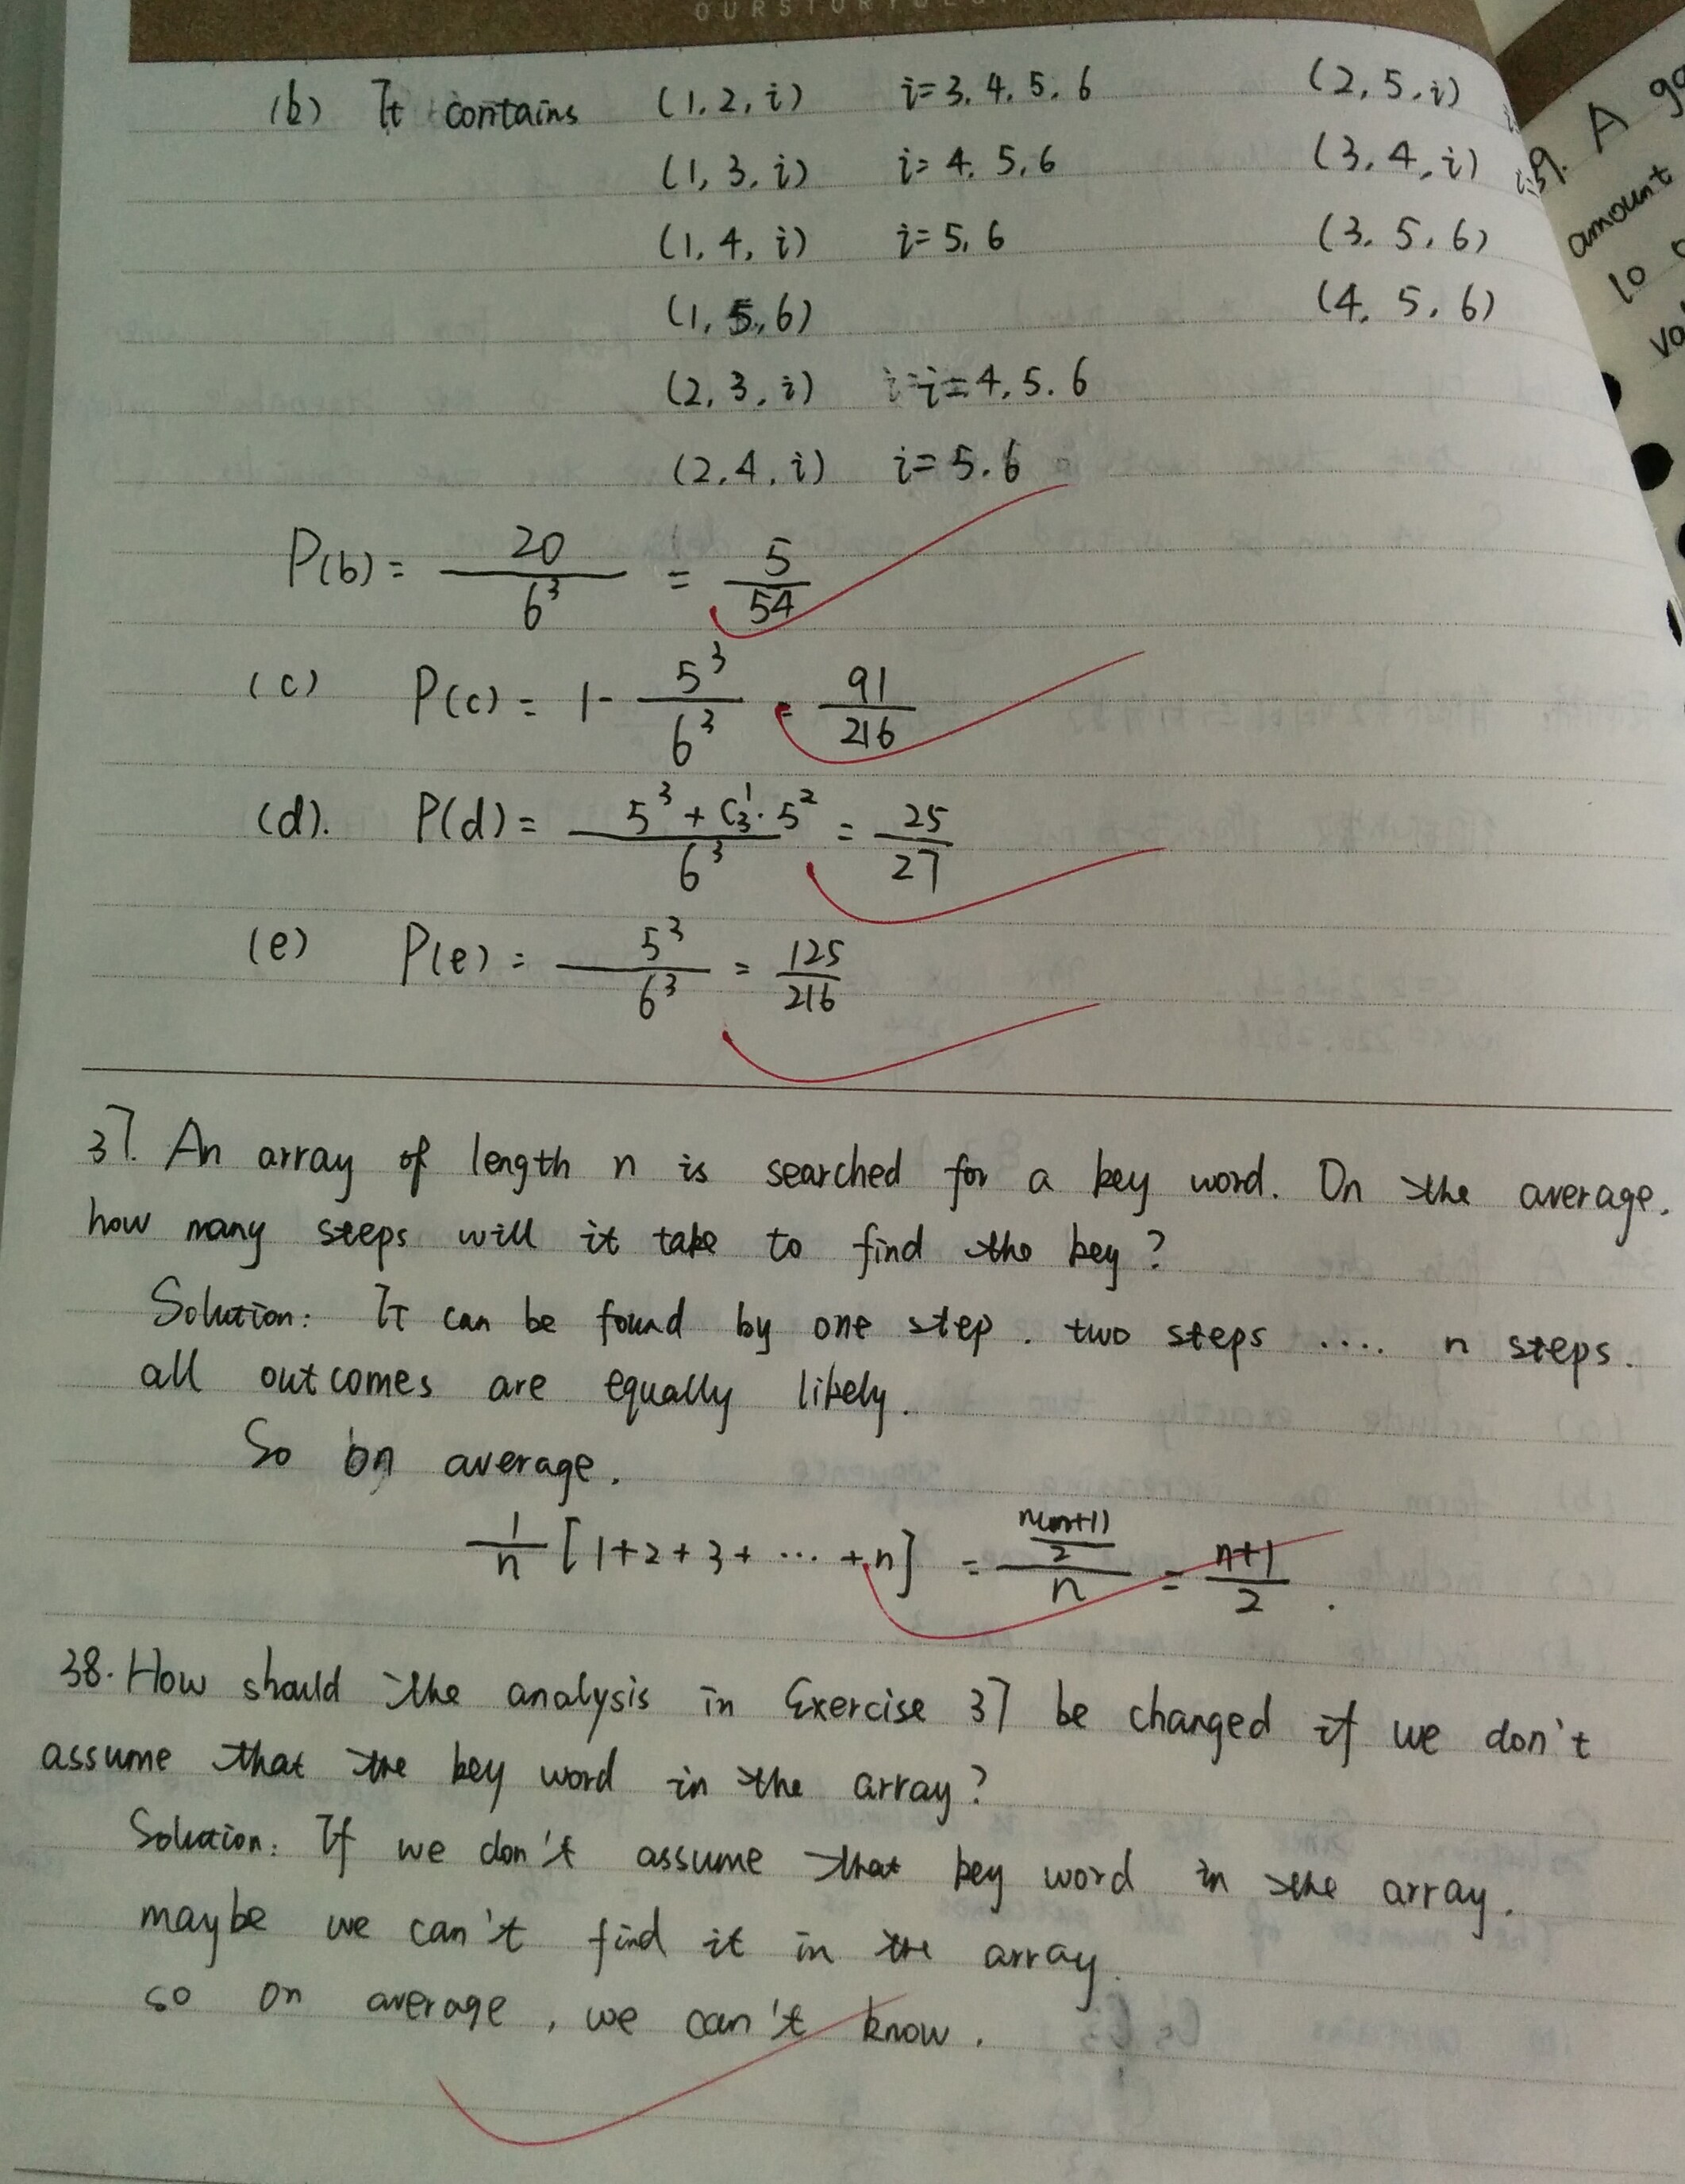 (b) It contains (1,2,i) i=3,4,5,6 (2,5,i)
(1,3,i) i=4,5,6 (3,4,i)
(1,4,i) i=5,6 (3,5,6)
(1,5,6) (4,5,6)
(2,3,i) i=4,5,6
(2,4,i) i=5,6
P(b) = 20/6³ = 5/54
(c) P(c) = 1 - 5³/6³ = 91/216
(d). P(d) = (5³ + C₃¹·5²)/6³ = 25/27
(e) P(e) = 5³/6³ = 125/216
37. An array of length n is searched for a key word. On the average.
how many steps will it take to find the key?
Solution: It can be found by one step. two steps .... n steps.
all outcomes are equally likely.
So on average.
1/n [1+2+3+ ... +n] = (n(n+1)/2)/n = (n+1)/2.
38. How should the analysis in Exercise 37 be changed if we don't
assume that the key word in the array?
Solution: If we don't assume that key word in the array.
maybe we can't find it in the array.
so on average, we can't know.
9. A
amount
10